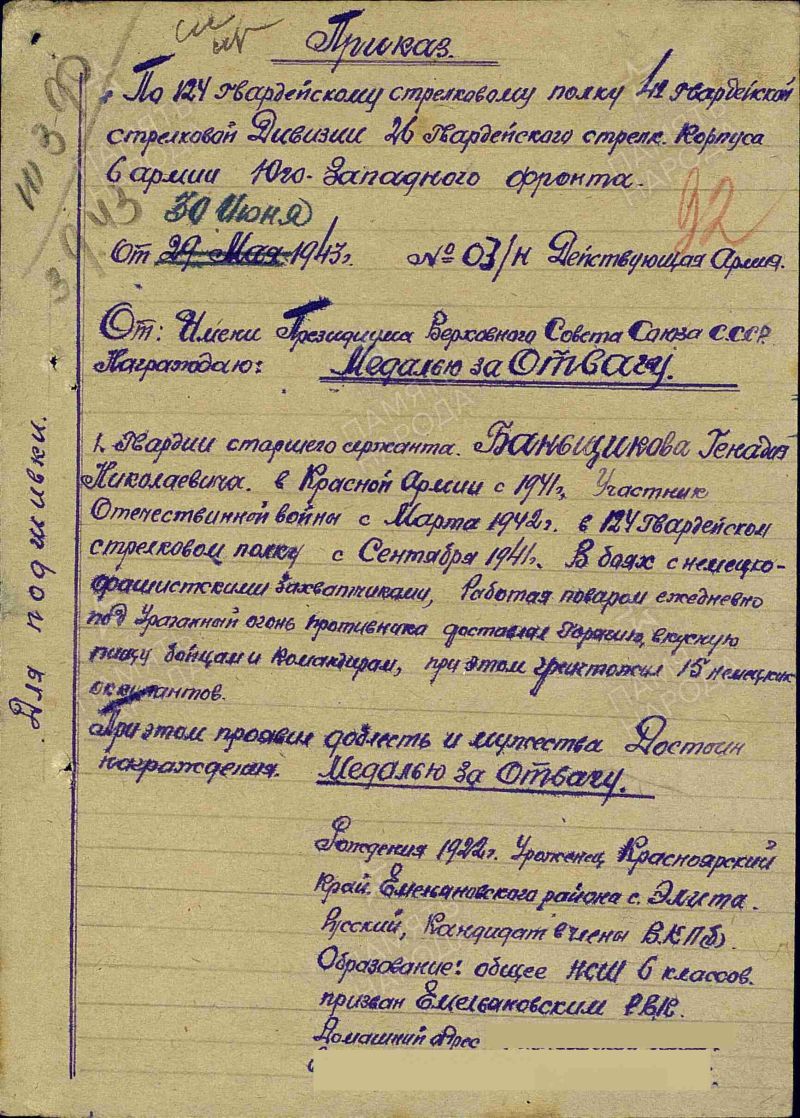 Приказ.
По 124 Гвардейскому стрелковому полку 41 Гвардейской
стрелковой Дивизии 26 Гвардейского стрелк. Корпуса
6 армии Юго-Западного фронта.
30 Июня
92
От 29 Мая 1943г. № 03/н Действующая Армия.
От: Имени Президиума Верховного Совета Союза С.С.С.Р.
Награждаю: Медалью за Отвагу.
1. Гвардии старшего сержанта. Баньщикова Генадия
Николаевича. в Красной Армии с 1941г, Участник
Отечествинной войны с Марта 1942г. в 124 Гвардейском
стрелковом полку с Сентября 1941г. В боях с немецко-
фашистскими захватчиками, Работая поваром ежедневно
под Ураганный огонь противника доставлял Горячию, вкусную
пищу бойцам и командирам, при этом уничтожил 15 немецких
оккупантов.
При этом проявил доблесть и мужества Достоин
награждения. Медалью за Отвагу.
Рождения 1922г. Уроженец Красноярский
Край Емельяновского района с. Элита.
Русский, Кандидат в члены В.К.П(б).
Образование: общее НСШ 6 классов.
призван Емельяновским Р.В.К.
Домашний адрес
Для подшивки.
ПАМЯТЬ
НАРОДА